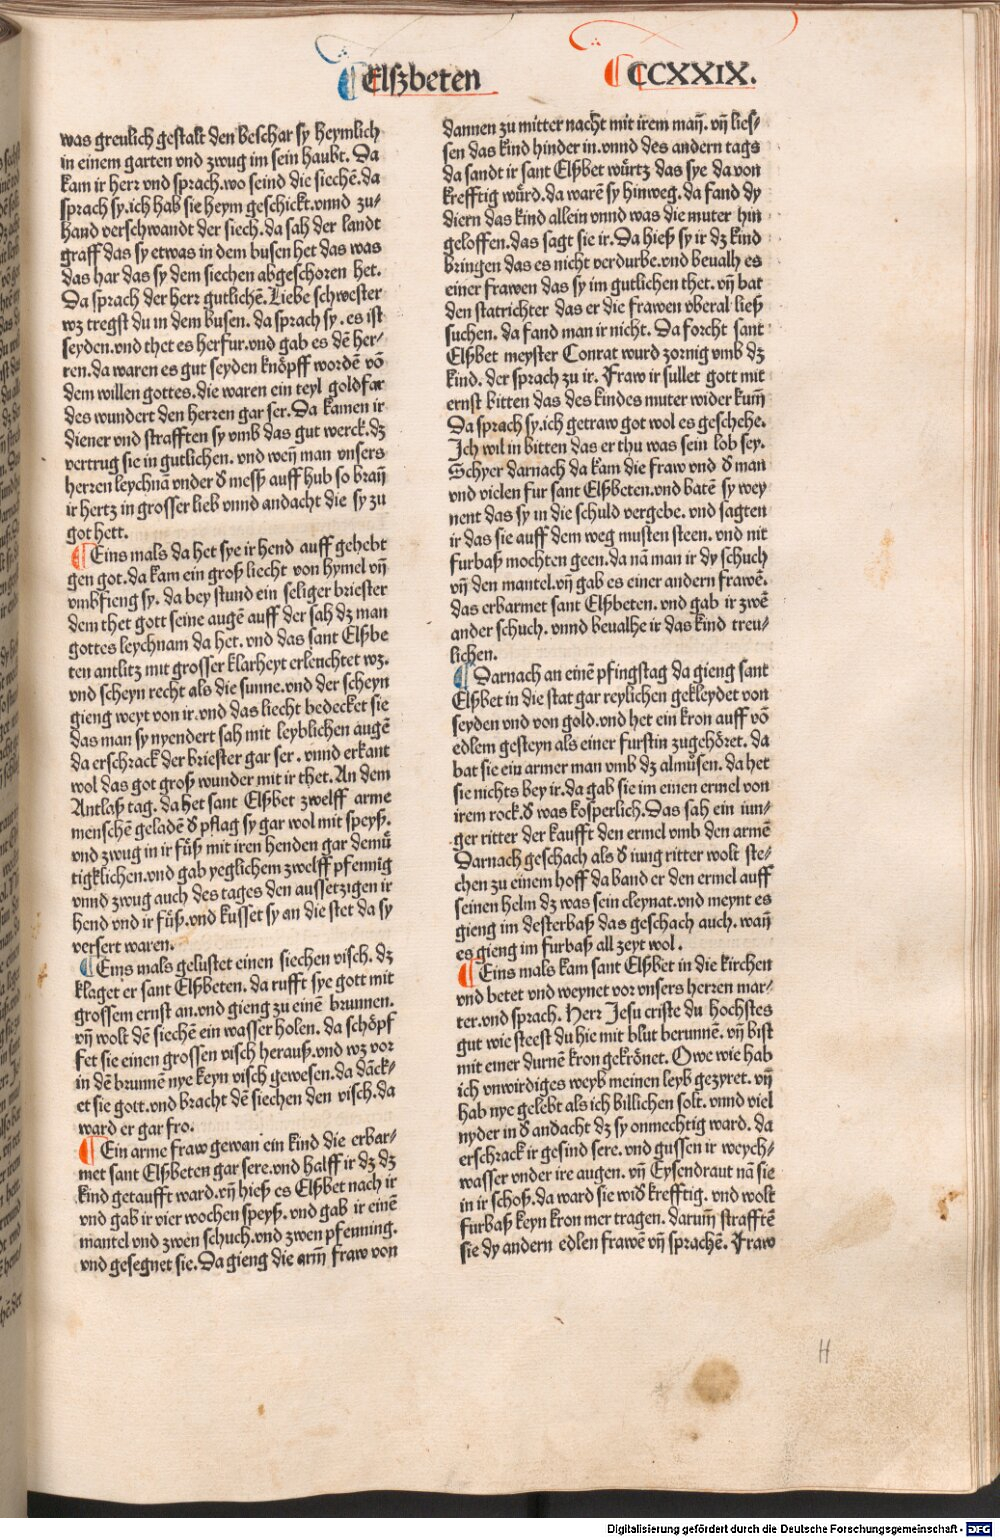 Elßbeten
CCXXIX.
was greulich gestalt den beschar sy heymlich
in einem garten vnd zwug im sein haubt. Da
kam ir herr vnd sprach.wo seind die siechē.da
sprach sy.ich hab sie heym geschickt.vnnd zu⸗
hand verschwandt der siech.da sah der landt
graff das sy etwas in dem busen het das was
das har das sy dem siechen abgeschoren het.
Da sprach der herr gutlichē.Liebe schwester
wz tregst du in dem busen. da sprach sy.es ist
seyden.vnd thet es herfur.vnd gab es dē her⸗
ren.da waren es gut seyden knöpff wordē vō
dem willen gottes.die waren ein teyl goldfar
des wundert den herren gar ser.Da kamen ir
diener vnd strafften sy vmb das gut werck.dz
vertrug sie in gutlichen. vnd weñ man vnsers
herren leychnā vnder d̕ mess auff hub so brañ
ir hertz in grosser lieb vnnd andacht die sy zu
got hett.
Eins mals da het sye ir hend auff gehebt
gen got.da kam ein groß liecht von hymel vñ
vmbfieng sy. da bey stund ein seliger briester
dem thet gott seine augē auff der sah dz man
gottes leychnam da het. vnd das sant Elßbe
ten antlitz mit grosser klarheyt erleuchtet wz.
vnd scheyn recht als die sunne.vnd der scheyn
gieng weyt von ir.vnd das liecht bedecket sie
das man sy nyendert sah mit leyblichen augē
da erschrack der briester gar ser. vnnd erkant
wol das got groß wunder mit ir thet. An dem
Antlaß tag. da het sant Elßbet zwelff arme
menschē geladē d̕ pflag sy gar wol mit speyß.
vnd zwug in ir fuͤß mit iren henden gar demuͤ
tigklichen.vnd gab yeglichem zwelff pfennig
vnnd zwug auch des tages den aussetzigen ir
hend vnd ir fuͤß.vnd kusset sy an die stet da sy
versert waren.
Eins mals gelustet einen siechen visch. dz
klaget er sant Elßbeten. da rufft sye gott mit
grossem ernst an.vnd gieng zu einē brunnen.
vñ wolt dē siechē ein wasser holen. da schöpf
fet sie einen grossen visch herauß.vnd wz vor
in dē brunnē nye keyn visch gewesen.da dāck⸗
et sie gott.vnd bracht dē siechen den visch.da
ward er gar fro.
Ein arme fraw gewan ein kind die erbar⸗
met sant Elßbeten gar sere.vnd halff ir dz dz
kind getaufft ward.vñ hieß es Elßbet nach ir
vnd gab ir vier wochen speyß. vnd gab ir einē
mantel vnd zwen schuch.vnd zwen pfenning.
vnd gesegnet sie. Da gieng die arm̃ fraw von
dannen zu mitter nacht mit irem mañ. vñ lies⸗
sen das kind hinder in.vnnd des andern tags
da sandt ir sant Elßbet wuͤrtz das sye da von
krefftig wuͤrd.da warē sy hinweg. da fand dy
diern das kind allein vnnd was die muter hin
geloffen.das sagt sie ir.Da hieß sy ir dz kind
bringen das es nicht verdurbe.vnd beualh es
einer frawen das sy im gutlichen thet. vñ bat
den statrichter das er die frawen vberal ließ
suchen. da fand man ir nicht. Da forcht sant
Elßbet meyster Conrat wurd zornig vmb dz
kind. der sprach zu ir. Fraw ir sullet gott mit
ernst bitten das des kindes muter wider kum̃
Da sprach sy.ich getraw got wol es geschehe.
Ich wil in bitten das er thu was sein lob sey.
Schyer darnach da kam die fraw vnd d̕ man
vnd vielen fur sant Elßbeten.vnd batē sy wey
nent das sy in die schuld vergebe. vnd sagten
ir das sie auff dem weg musten steen. vnd nit
furbaß mochten geen.da nā man ir dy schuch
vñ den mantel.vñ gab es einer andern frawē.
das erbarmet sant Elßbeten. vnd gab ir zwē
ander schuch. vnnd beualhe ir das kind treu⸗
lichen.
Darnach an einē pfingstag da gieng sant
Elßbet in die stat gar reylichen gekleydet von
seyden vnd von gold.vnd het ein kron auff vō
edlem gesteyn als einer furstin zugehöret. da
bat sie ein armer man vmb dz almuͤsen. da het
sie nichts bey ir.da gab sie im einen ermel von
irem rock.d̕ was kosperlich.Das sah ein iun⸗
ger ritter der kaufft den ermel vmb den armē
Darnach geschach als d̕ iung ritter wolt ste⸗
chen zu einem hoff da band er den ermel auff
seinen helm dz was sein cleynat.vnd meynt es
gieng im desterbaß das geschach auch. wañ
es gieng im furbaß all zeyt wol.
Eins mals kam sant Elßbet in die kirchen
vnd betet vnd weynet vor vnsers herren mar⸗
ter.vnd sprach. Herr Jesu criste du hochstes
gut wie steest du hie mit blut berunnē. vñ bist
mit einer durnē kron gekrönet. Owe wie hab
ich vnwirdiges weyb meinen leyb gezyret. vñ
hab nye gelebt als ich billichen solt. vnnd viel
nyder in d̕ andacht dz sy onmechtig ward. da
erschrack ir gesind sere. vnd gussen ir weych⸗
wasser vnder ire augen. vñ Eysendraut nā sie
in ir schoß.da ward sie wid̕ krefftig. vnd wolt
furbaß keyn kron mer tragen. darum̃ strafftē
sie dy andern edlen frawē vñ sprachē. Fraw
H
Digitalisierung gefördert durch die Deutsche Forschungsgemeinschaft - DFG